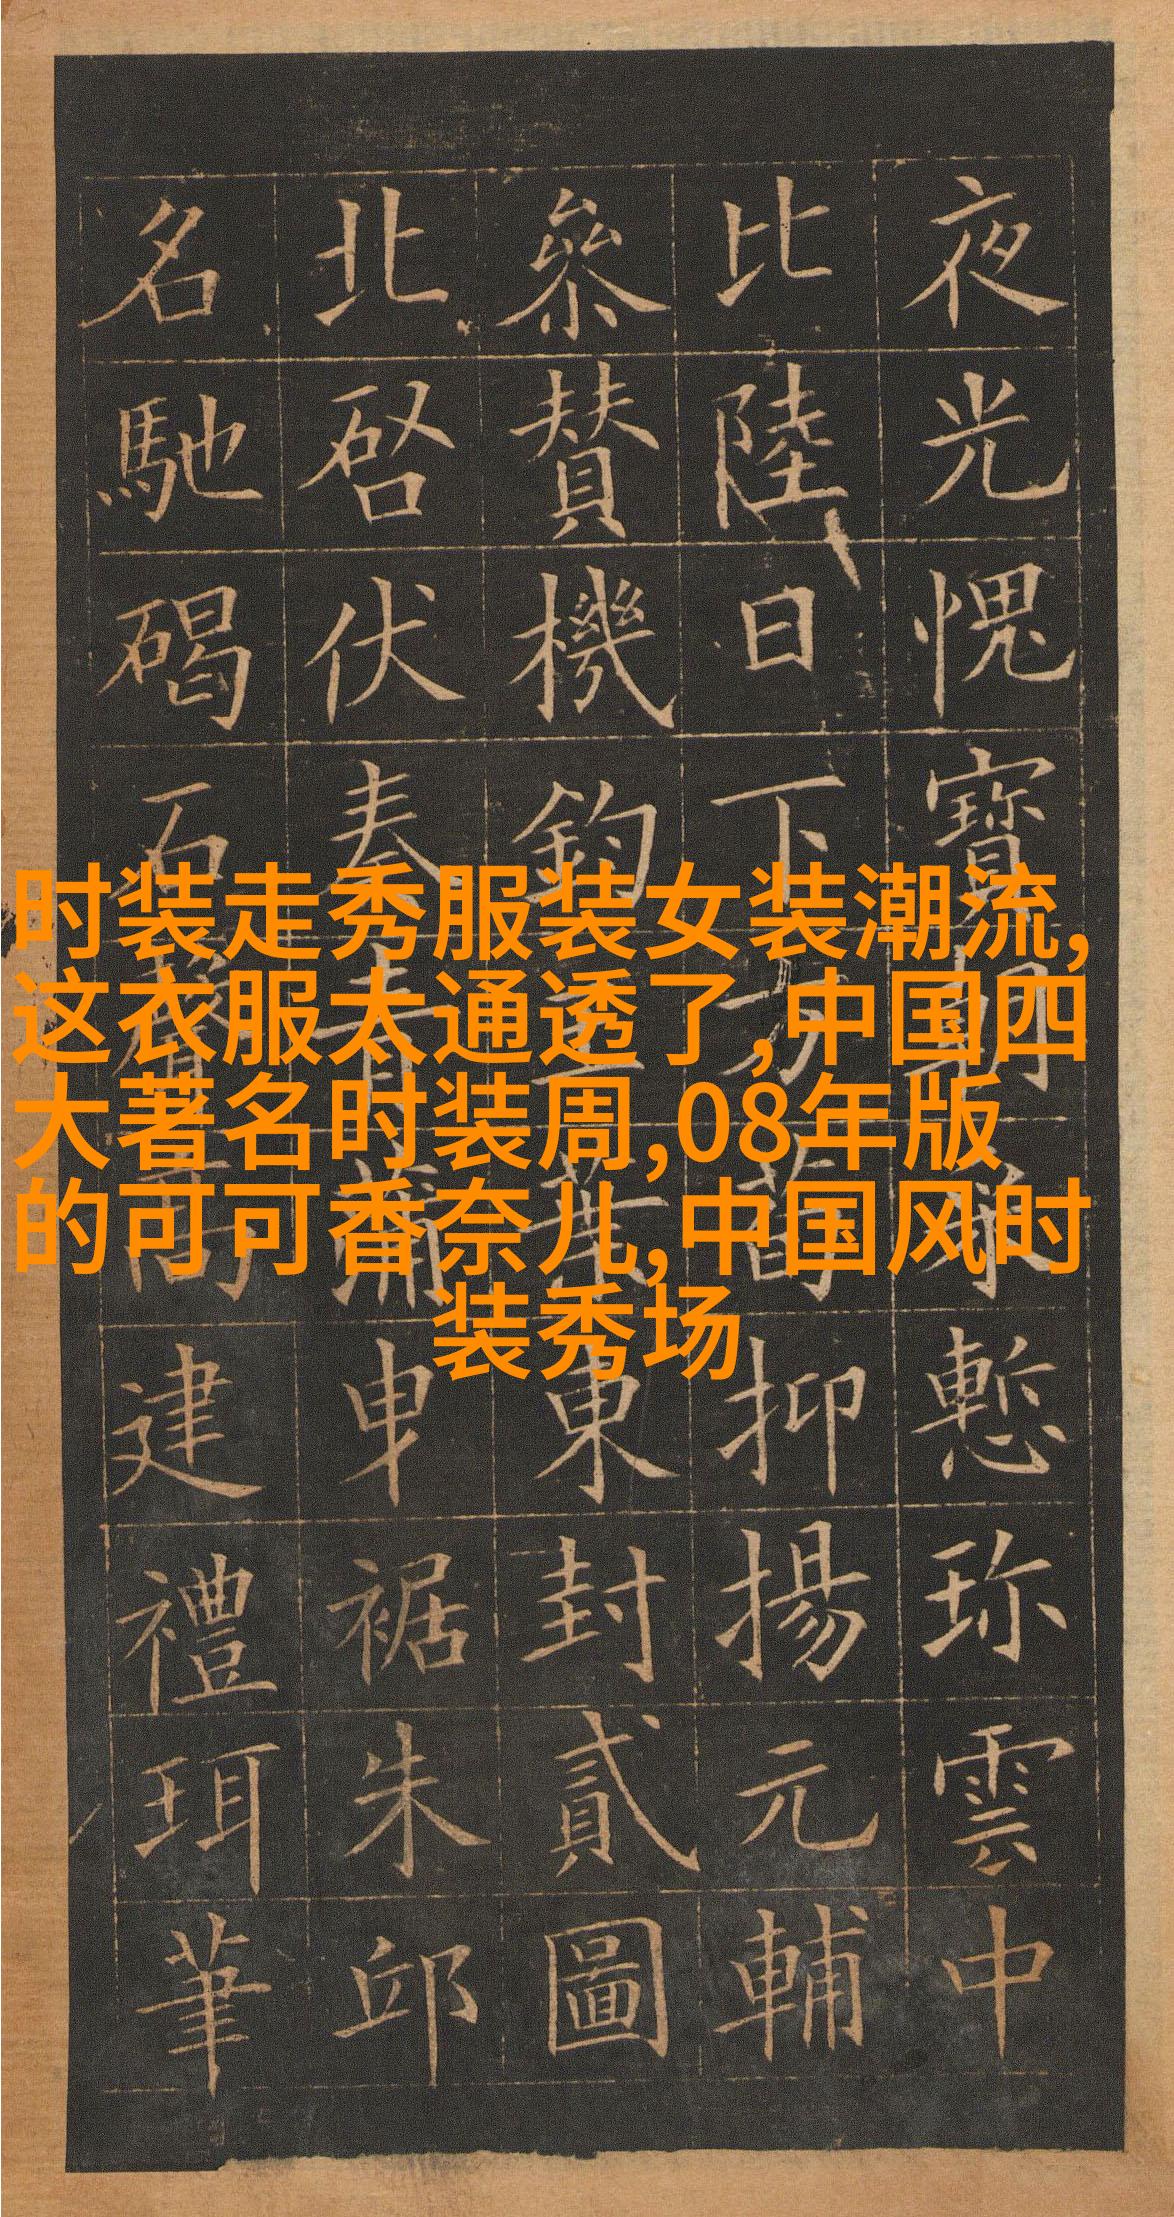 夜光愧寶朝慙珎雲中
比陸日下方荀抑揚元輔
參贊機鈞王業東封貳圖
北啓伏奏青蒲申裾朱邸
名馳碣石聲高建禮珥筆
时装走秀服装女装潮流,
这衣服太通透了,中国四
大著名时装周,08年版
的可可香奈儿,中国风时
装秀场